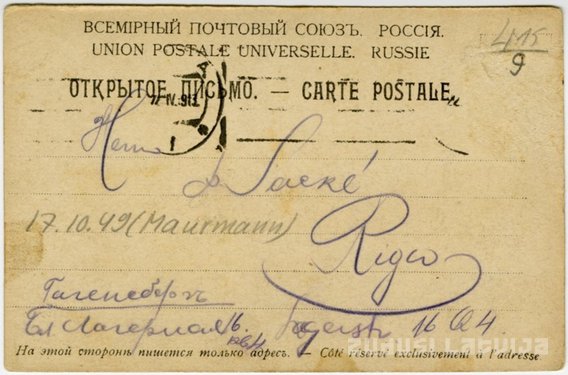 ВСЕМІРНЫЙ ПОЧТОВЫЙ СОЮЗЪ. РОССІЯ.
UNION POSTALE UNIVERSELLE. RUSSIE
415
9
ОТКРЫТОЕ ПИСЬМО. — CARTE POSTALE
Herrn
Riga
17.10.49 (Maurmann)
Гагенсбергъ
Бл Лагерная 16 16 Q 4
кв 4
На этой сторонѣ пишется только адресъ. — Côté réservé exclusivement à l'adresse.
ZUDUSI LATVIJA